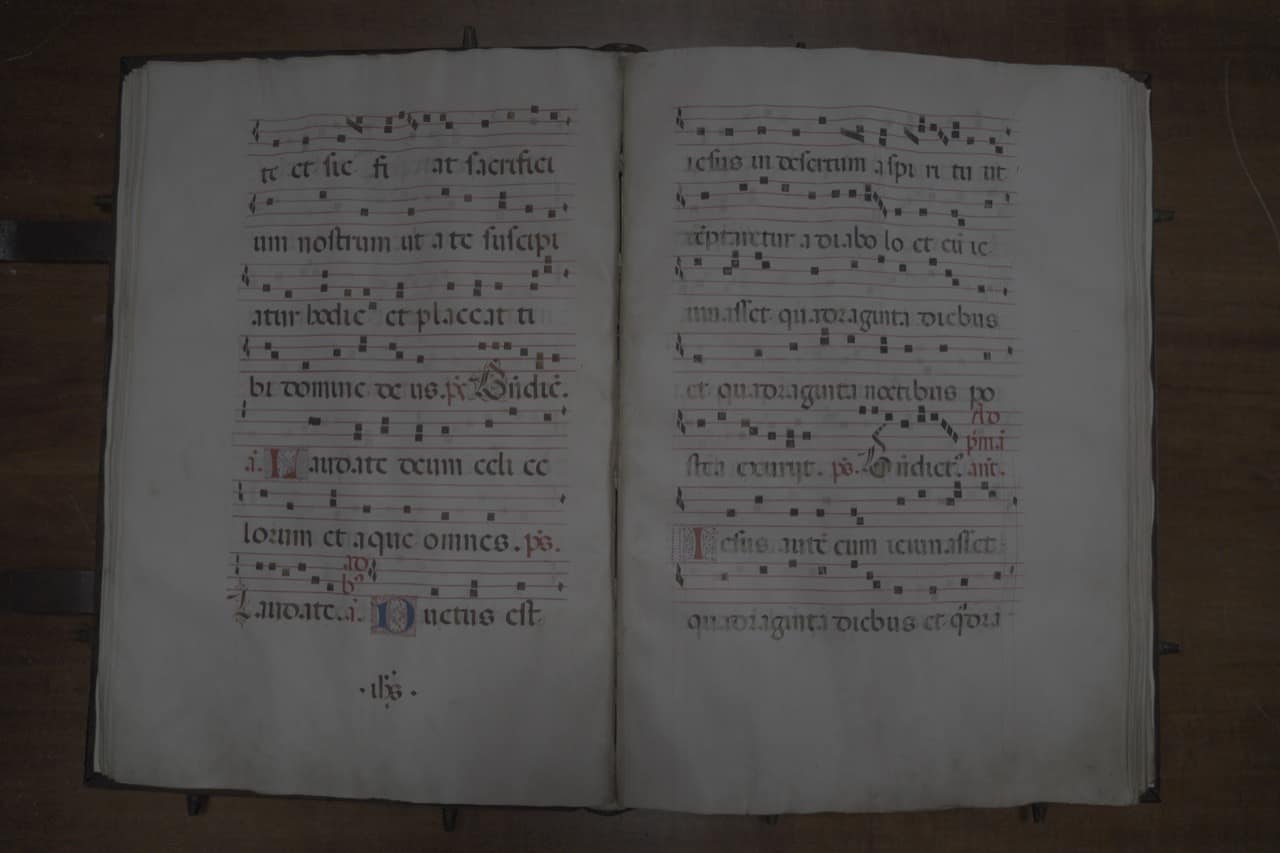 te et sic fi at sacrifici
um nostrum ut a te suscipi
atur hodie et placeat ti
bi domine de us. ps. Bn̄dic̄.
a. Laudate deum celi ce
lorum et aque omnes. ps.
ad
b⁹
Laudate. a. Ductus est
. ihs .
iesus in desertum a spi ri tu ut
tēptaretur a diabo lo et cū ie
iunasset quadraginta diebus
et quadraginta noctibus po
Ad
p̄ma
stea exurijt. ps. Bn̄dict. ant.
Iesus autē cum ieiunasset
quadraginta diebus et q̄dra